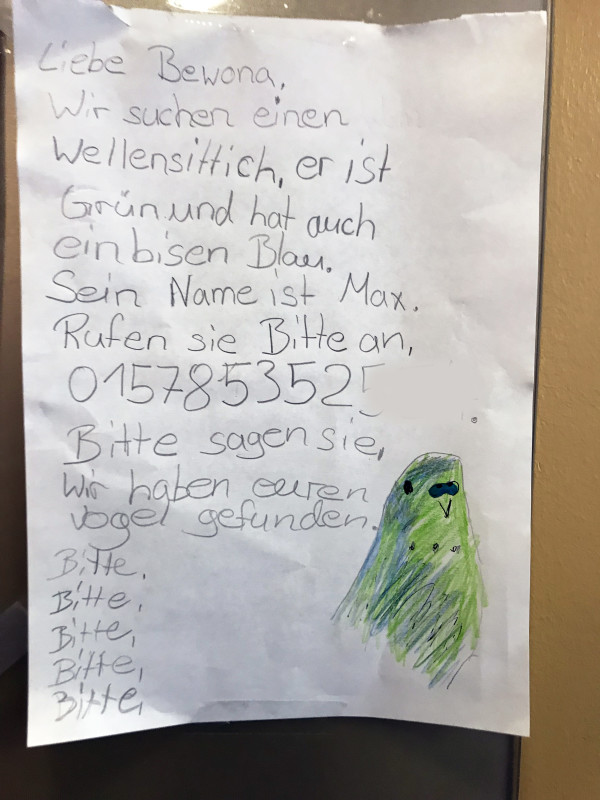 Liebe Bewona,
Wir suchen einen
Wellensittich, er ist
Grün und hat auch
ein bisen Blau.
Sein Name ist Max.
Rufen sie Bitte an,
0157853525
Bitte sagen sie,
Wir haben euren
vogel gefunden.
Bitte,
Bitte,
Bitte,
Bitte,
Bitte,